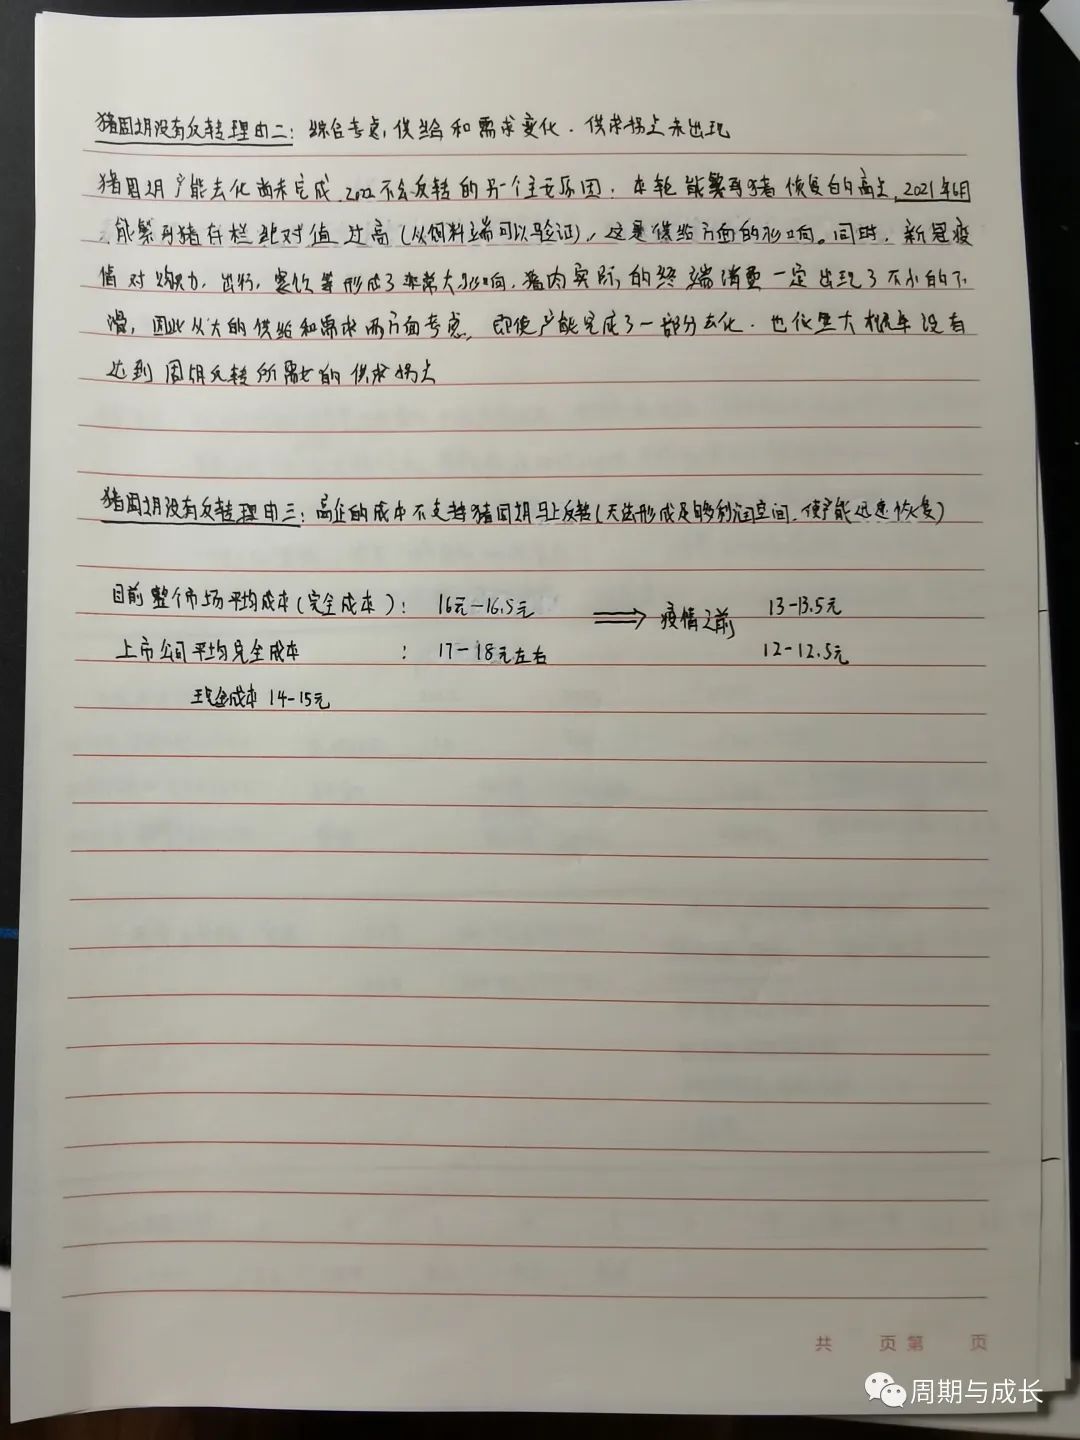 猪周期没有反转理由二：综合考虑，供给和需求变化．供求拐点未出现
猪周期产能去化尚未完成．2022不会反转的另一个主要原因：本轮能繁母猪恢复的高点，2021年6月
能繁母猪存栏绝对值过高（从饲料端可以验证），这是供给方面的影响。同时，新冠疫
情对出行，餐饮等形成了非常大影响，猪肉实际的终端消费一定出现了不小的下
滑，因此从大的供给和需求两方面考虑，即使产能完成了一部分去化．也依然大概率没有
达到周期反转所需要的供求拐点
猪周期没有反转理由三：高企的成本不支持猪周期马上反转（无法形成足够利润空间．使产能迅速恢复）
目前整个市场平均成本（完全成本）： 16元－16.5元 ⟹ 疫情之前 13－13.5元
上市公司平均完全成本 ： 17－18元左右 12－12.5元
现金成本 14－15元
共 页 第 页
周期与成长